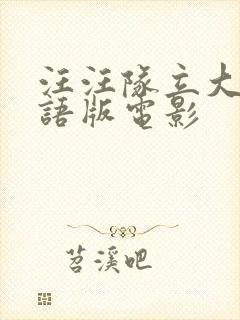 汪汪隊立大
語版電影
苕溪吧